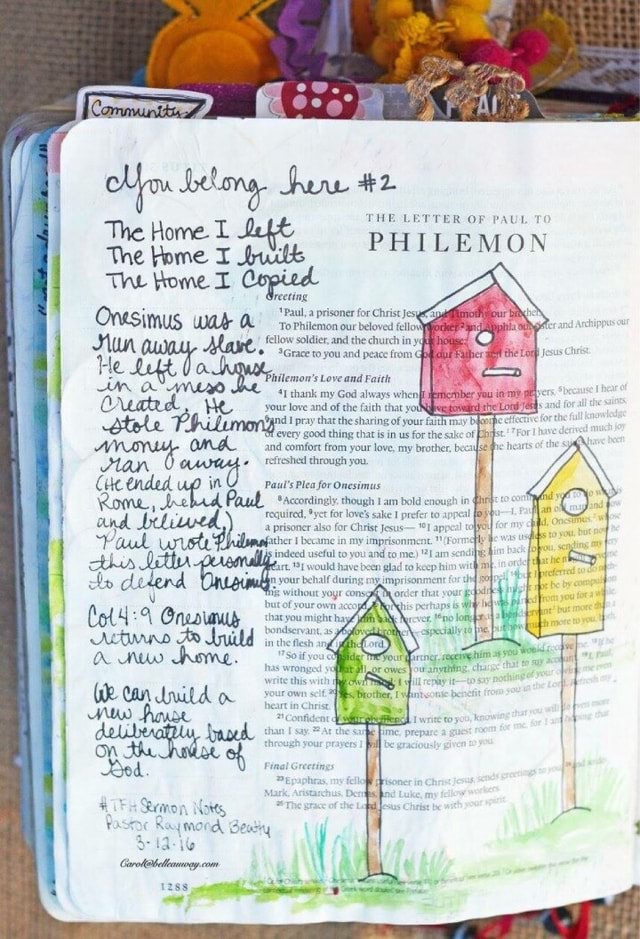 Community
You belong here #2
The Home I left
The Home I built
The Home I Copied
Onesimus was a
run away slave.
He left a house
in a mess he
created. He
stole Philemon's
money and
ran away.
(He ended up in
Rome, heard Paul
and believed.)
Paul wrote Philemon
this letter personally
to defend Onesimus.
Col 4:9 Onesimus
returns to build
a new home.
We can build a
new house
deliberately based
on the house of
God.
#TFH Sermon Notes
Pastor Raymond Beatty
3-12-16
Carol@belleauway.com
1288
THE LETTER OF PAUL TO
PHILEMON
Greeting
1Paul, a prisoner for Christ Jesus, and Timothy our brother,
To Philemon our beloved fellow worker 2and Apphia our sister and Archippus our
fellow soldier, and the church in your house:
3Grace to you and peace from God our Father and the Lord Jesus Christ.
Philemon's Love and Faith
4I thank my God always when I remember you in my prayers, 5because I hear of
your love and of the faith that you have toward the Lord Jesus and for all the saints,
and I pray that the sharing of your faith may become effective for the full knowledge
of every good thing that is in us for the sake of Christ. 7For I have derived much joy
and comfort from your love, my brother, because the hearts of the saints have been
refreshed through you.
Paul's Plea for Onesimus
8Accordingly, though I am bold enough in Christ to command you to do what is
required, 9yet for love's sake I prefer to appeal to you—I, Paul, an old man and
a prisoner also for Christ Jesus— 10I appeal to you for my child, Onesimus,
father I became in my imprisonment. 11(Formerly he was useless to you, but now
is indeed useful to you and to me.) 12I am sending him back to you, sending my
heart. 13I would have been glad to keep him with me, in order that he
on your behalf during my imprisonment for the gospel, but I preferred to do
ing without your consent in order that your goodness might not be by compulsion
but of your own accord. this perhaps is why he from you for a while,
that you might have him back forever, no longer as a but more than a
bondservant, as a beloved brother—especially to me, much more to you,
in the flesh and in the Lord.
17So if you consider me your partner, receive him as you would receive me. 18If he
has wronged you at all, or owes you anything, charge that to my account. 19I, Paul,
write this with my own hand: I will repay it—to say nothing of your owing me even
your own self. 20Yes, brother, I want some benefit from you in the Lord. Refresh my
heart in Christ.
21Confident of your obedience, I write to you, knowing that you will do even more
than I say. 22At the same time, prepare a guest room for me, for I am hoping that
through your prayers I will be graciously given to you.
Final Greetings
23Epaphras, my fellow prisoner in Christ Jesus, sends greetings to you, and so do
Mark, Aristarchus, Demas, and Luke, my fellow workers.
25The grace of the Lord Jesus Christ be with your spirit.